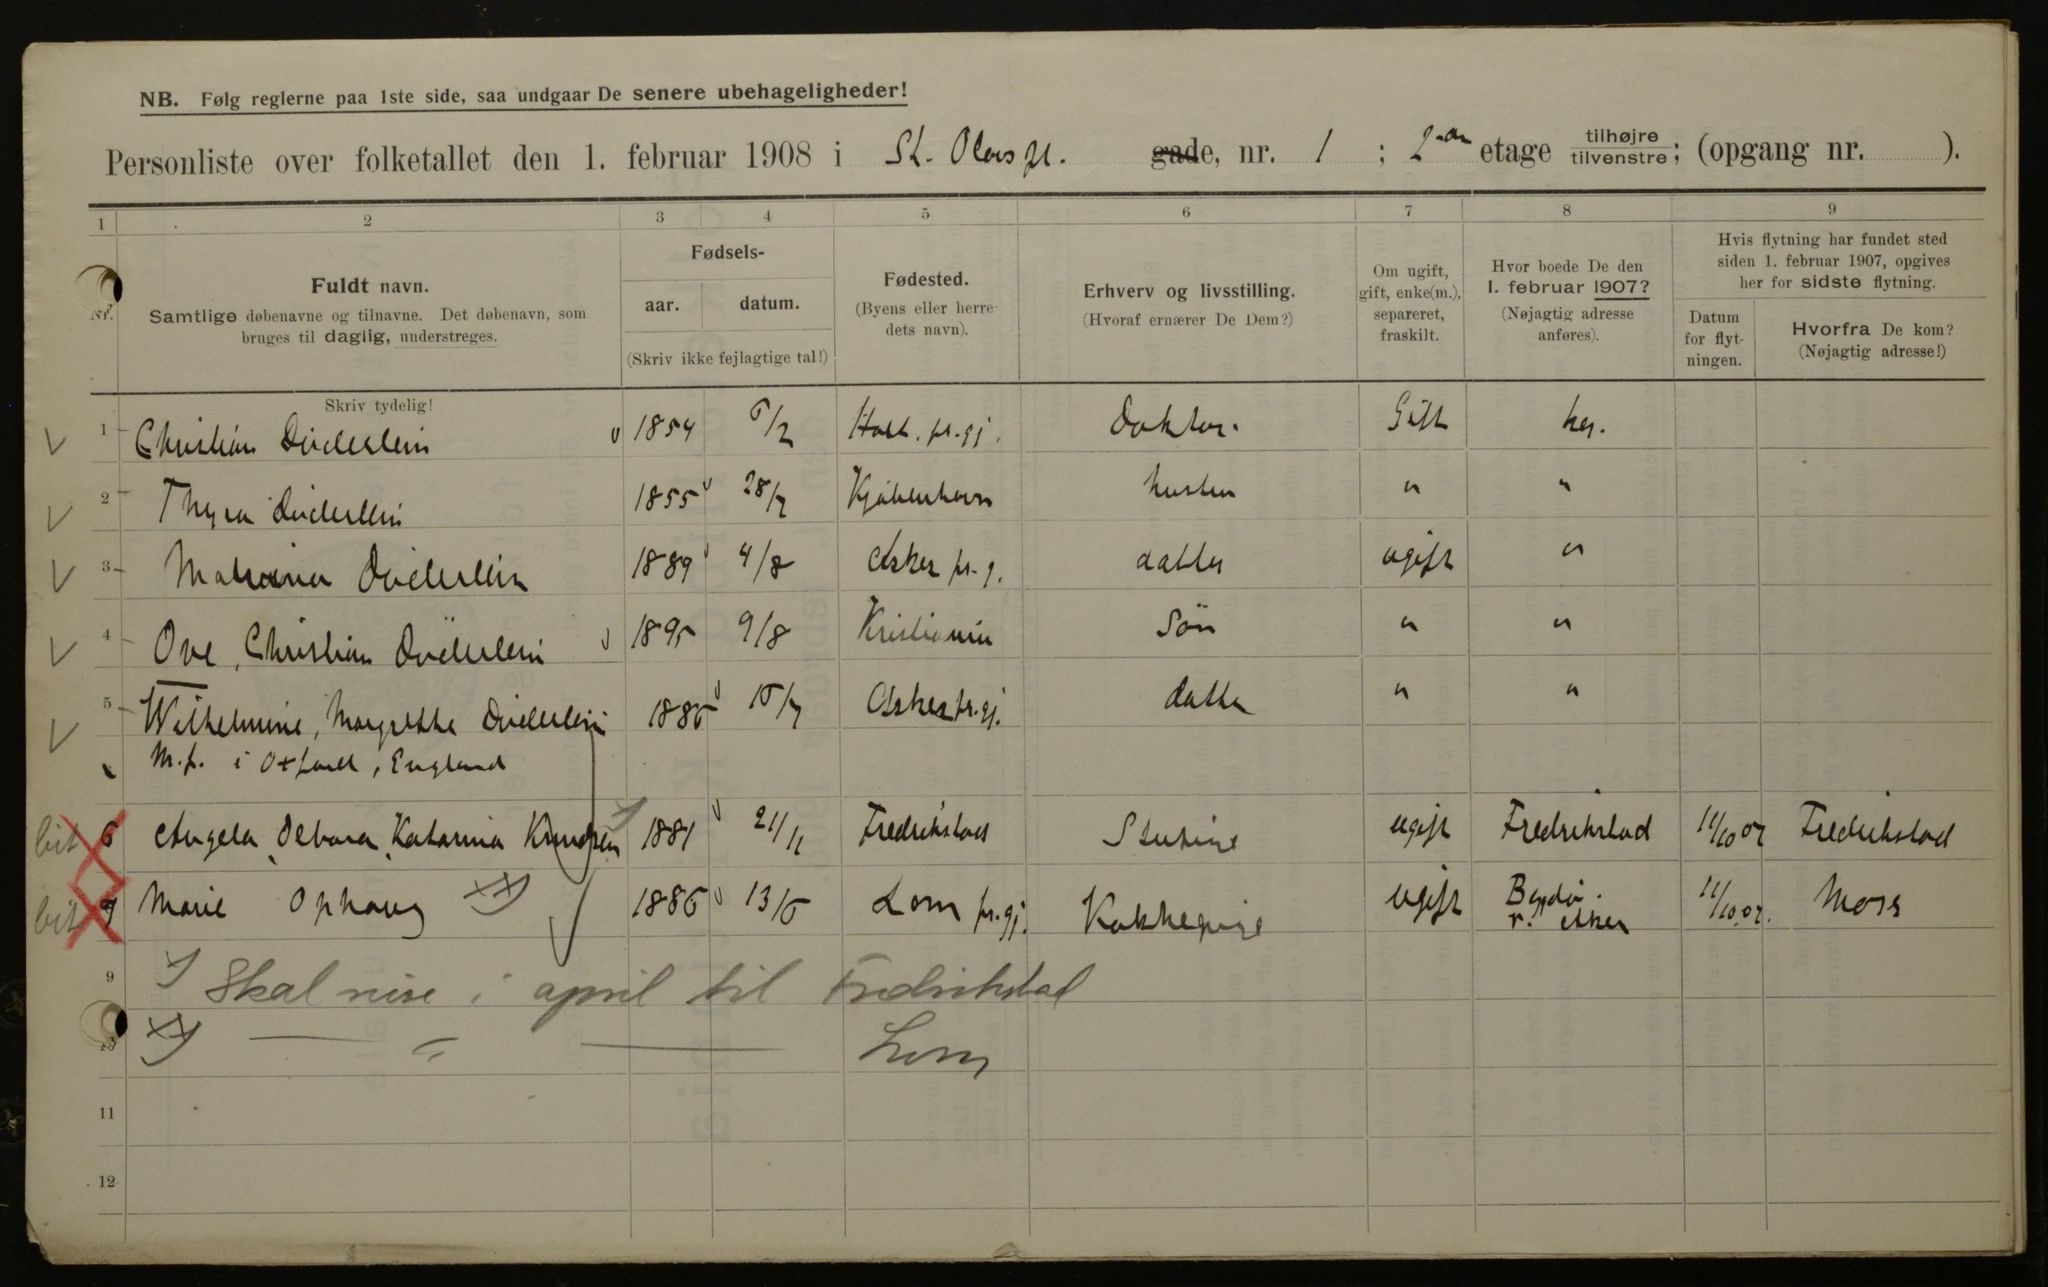 NB. Følg reglerne paa 1ste side, saa undgaar De senere ubehageligheder!
Personliste over folketallet den 1. februar 1908 i St. Olavs pl. gade, nr. 1 ; 2-en etage tilhøjre tilvenstre; (opgang nr. ).
1 2 3 4 5 6 7 8 9
Nr.
Fuldt navn.
Samtlige døbenavne og tilnavne. Det døbenavn, som
bruges til daglig, understreges.
Skriv tydelig!
Fødsels-
aar. datum.
(Skriv ikke fejlagtige tal!)
Fødested.
(Byens eller herre-
dets navn).
Erhverv og livsstilling.
(Hvoraf ernærer De Dem?)
Om ugift,
gift, enke(m.),
separeret,
fraskilt.
Hvor boede De den
1. februar 1907?
(Nøjagtig adresse
anføres).
Hvis flytning har fundet sted
siden 1. februar 1907, opgives
her for sidste flytning.
Datum
for flyt-
ningen.
Hvorfra De kom?
(Nøjagtig adresse!)
1 Christian Döderlein 1854 6/2 Holt. pr.gj. Doktor. Gift her.
2 Thyra Döderlein 1855 28/7 Kjøbenhavn hustru " "
3 Döderlein 1889 4/8 Asker pr.g. datter ugift "
4 Ove, Christian Döderlein 1895 9/8 Kristiania Sön " "
5 Wilhelmine, Margrethe Döderlein 1886 15/7 Asker pr.gj. datter " "
M.f. i Oxford, England
6 Angela, Debora, Katarina Knudsen 1881 21/11 Fredrikstad Stuepige ugift Fredrikstad 11/10 07 Fredrikstad
7 Marie Ophaug XX) 1886 13/6 Lom pr.gj. Kokkepige ugift Bygdö. v. Aker 11/10.07. Moss
9 X) Skal reise i april til Fredrikstad
10 XX) — " — Lom
11
12